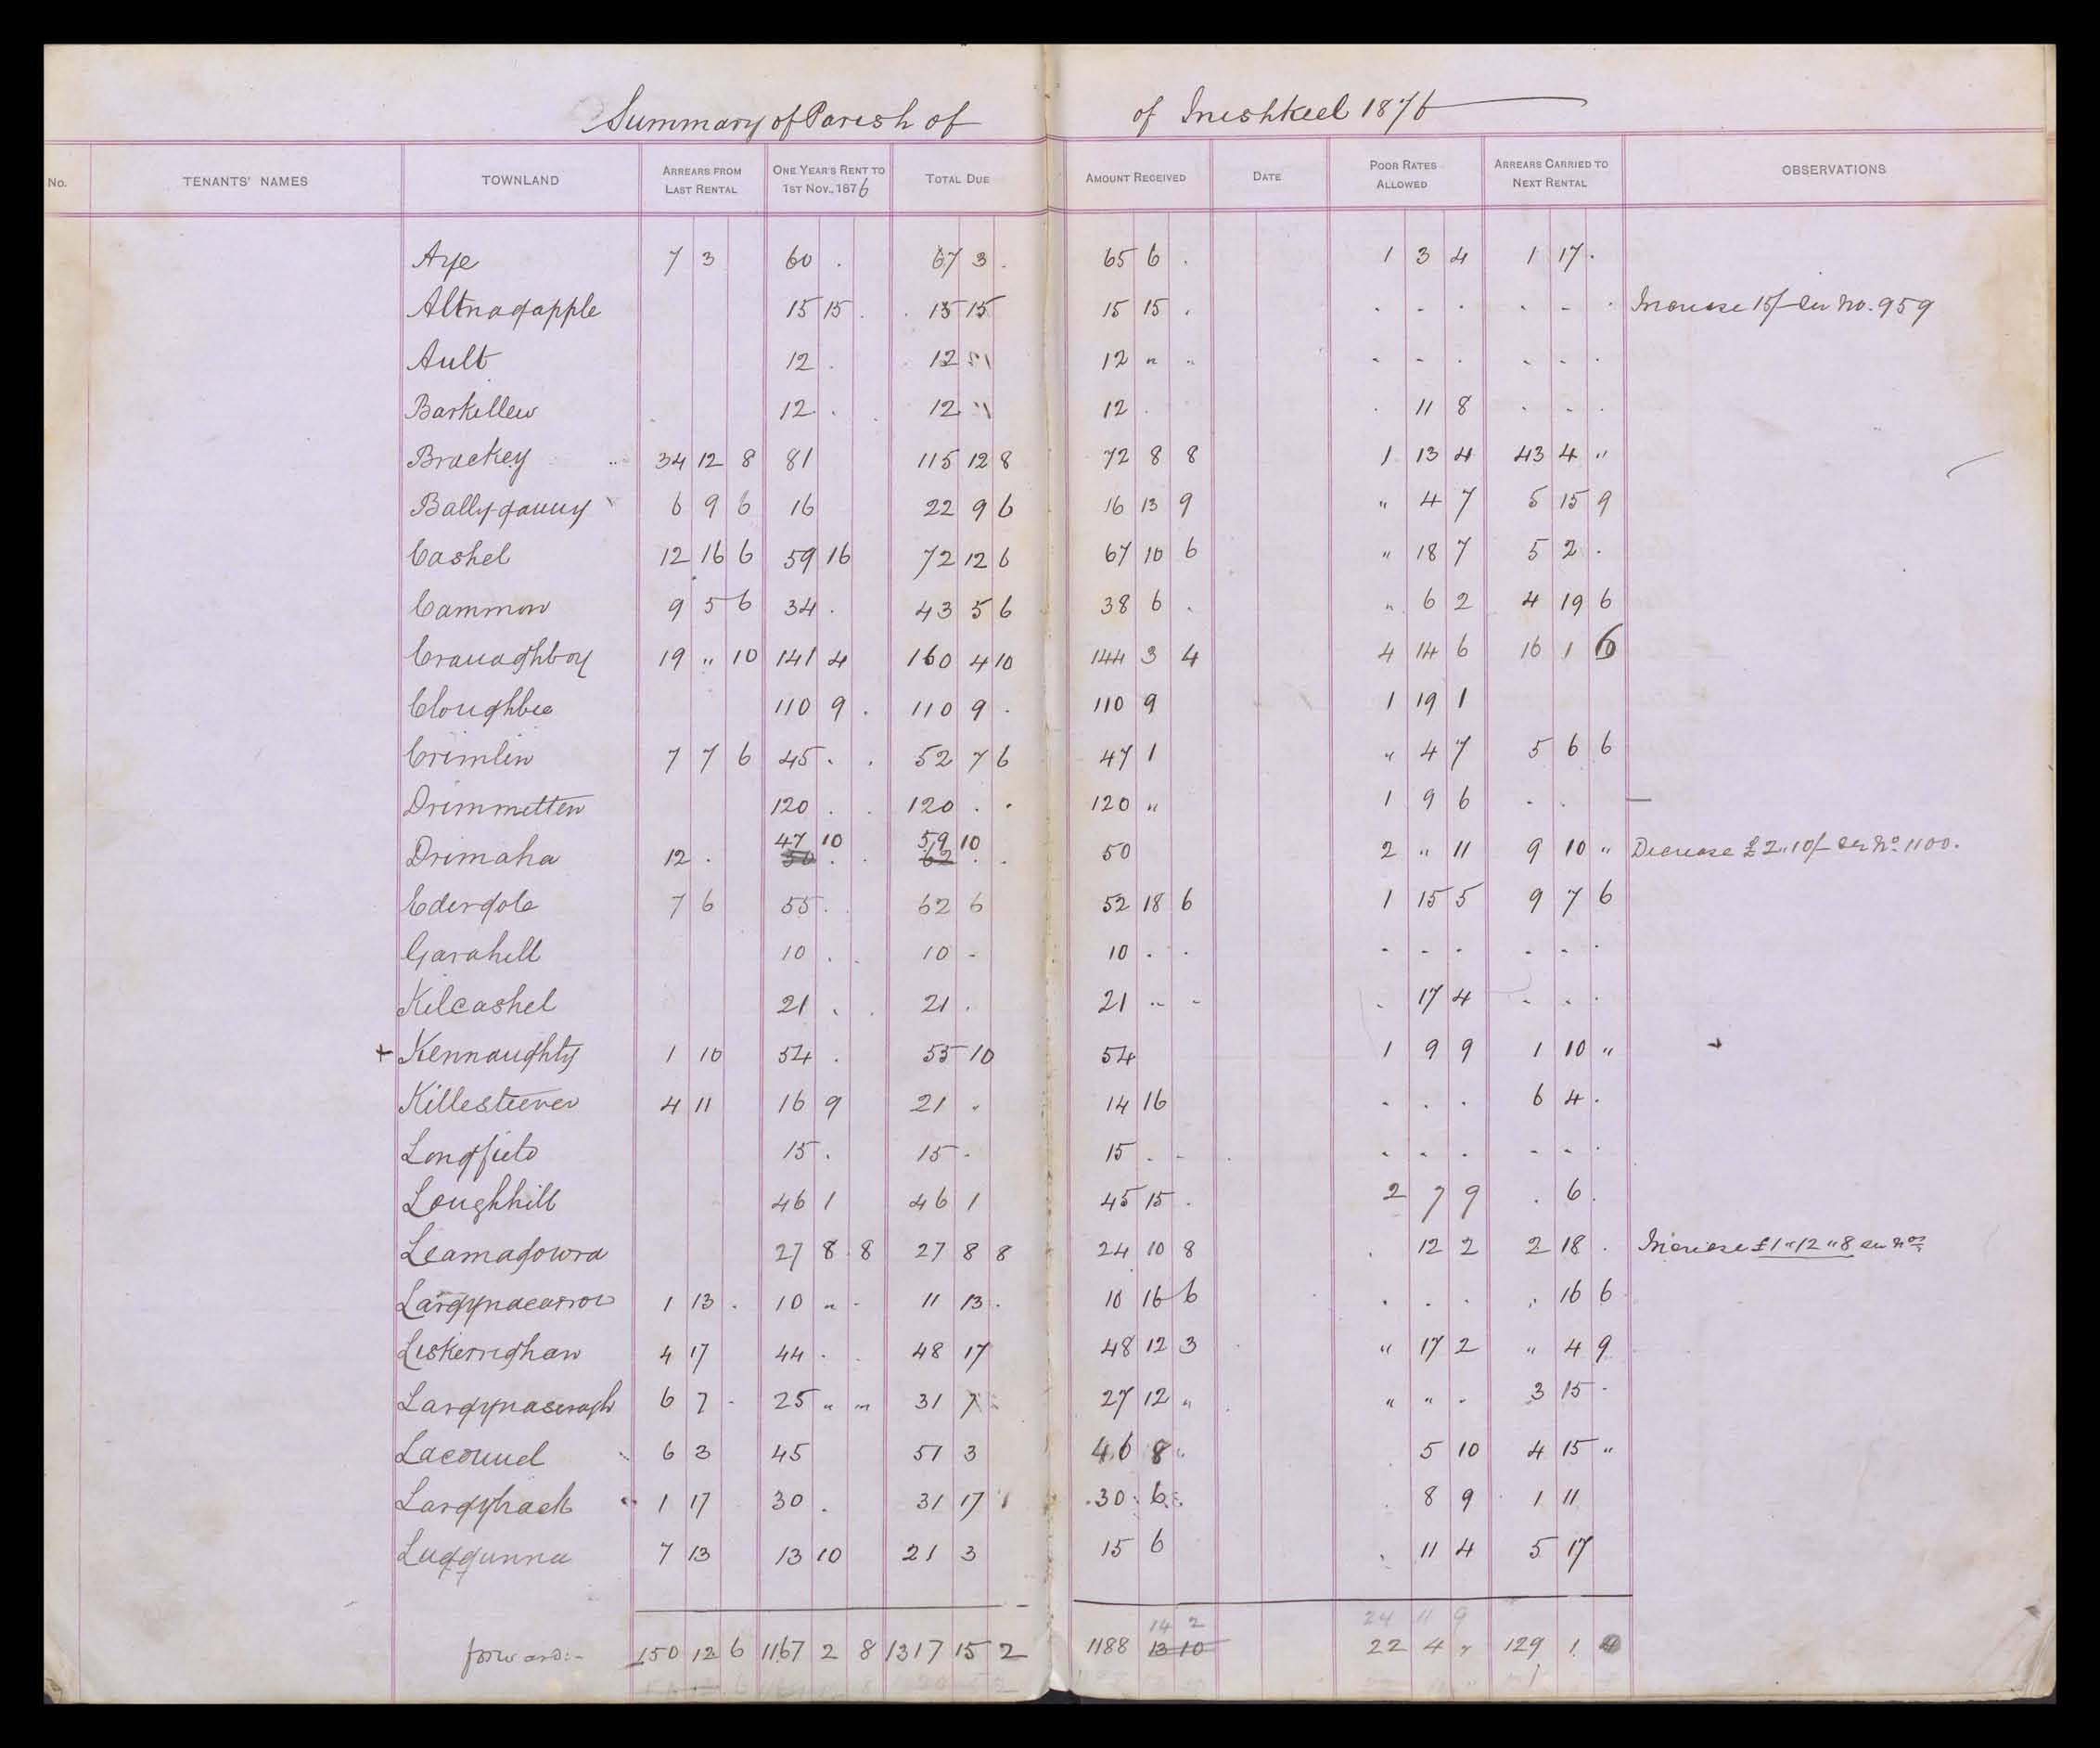 Summary of Parish of of Inishkeel 1876
No. TENANTS' NAMES TOWNLAND ARREARS FROM LAST RENTAL ONE YEAR'S RENT TO 1ST NOV., 1876 TOTAL DUE AMOUNT RECEIVED DATE POOR RATES ALLOWED ARREARS CARRIED TO NEXT RENTAL OBSERVATIONS
Aye 7 3 60 . 67 3 . 65 6 . 1 3 4 1 17 .
Altnagapple 15 15 . 15 15 15 15 . . - . . - . Increase 15/- See No. 959
Ault 12 . 12 " \ 12 " " - - . - - .
Barkillew 12 . . 12 " 12 . . 11 8 . - .
Brackey 34 12 8 81 115 12 8 72 8 8 1 13 4 43 4 "
Ballyganny 6 9 6 16 22 9 6 16 13 9 " 4 7 5 15 9
Cashel 12 16 6 59 16 72 12 6 67 10 6 " 18 7 5 2 .
Cammon 9 5 6 34 . 43 5 6 38 6 . " 6 2 4 19 6
Cranaghboy 19 " 10 141 4 160 4 10 144 3 4 4 14 6 16 1 6
Cloughbee 110 9 . 110 9 . 110 9 1 19 1
Crimlin 7 7 6 45 . . 52 7 6 47 1 " 4 7 5 6 6
Drimmetten 120 . . 120 . . 120 " 1 9 6 . . —
47 10 59 10
Drimaha 12 . 50 . . 62 . . 50 2 " 11 9 10 " Decrease £2.10/- See No 1100.
Edergole 7 6 55 . . 62 6 52 18 6 1 15 5 9 7 6
Garahill 10 . . 10 - 10 . . - - - - - .
Kilcashel 21 . . 21 . 21 " - . 17 4 - . .
+ Kennaughty 1 10 54 . 55 10 54 1 9 9 1 10 "
Killesteever 4 11 16 9 21 . 14 16 . . . 6 4 .
Longfield 15 . 15 . 15 . - - - . - - .
Loughhill 46 1 46 1 45 15 . 2 7 9 . 6 .
Leamagowra 27 8 8 27 8 8 24 10 8 . 12 2 2 18 . Increase £1"12"8 see Nos
Largynacarrow 1 13 . 10 " . 11 13 . 10 16 6 . . . " 16 6
Liskerrighan 4 17 44 . . 48 17 48 12 3 " 17 2 " 4 9
Largynaseragh 6 7 - 25 " " 31 7 27 12 " " " . 3 15 .
Laconnel 6 3 45 51 3 46 8 " . 5 10 4 15 "
Largybrack 1 17 30 . 31 17 30 6 . 8 9 1 11
Luggunna 7 13 13 10 21 3 15 6 . 11 4 5 17
14 2 24 11 9
forward:- 150 12 6 1167 2 8 1317 15 2 1188 13 10 22 4 " 129 1 4